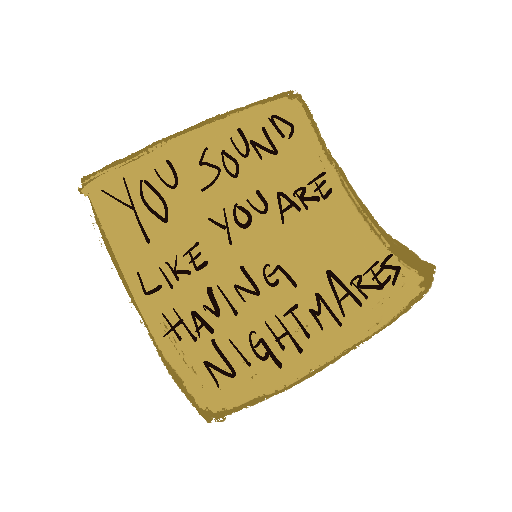 YOU SOUND
LIKE YOU ARE
HAVING
NIGHTMARES